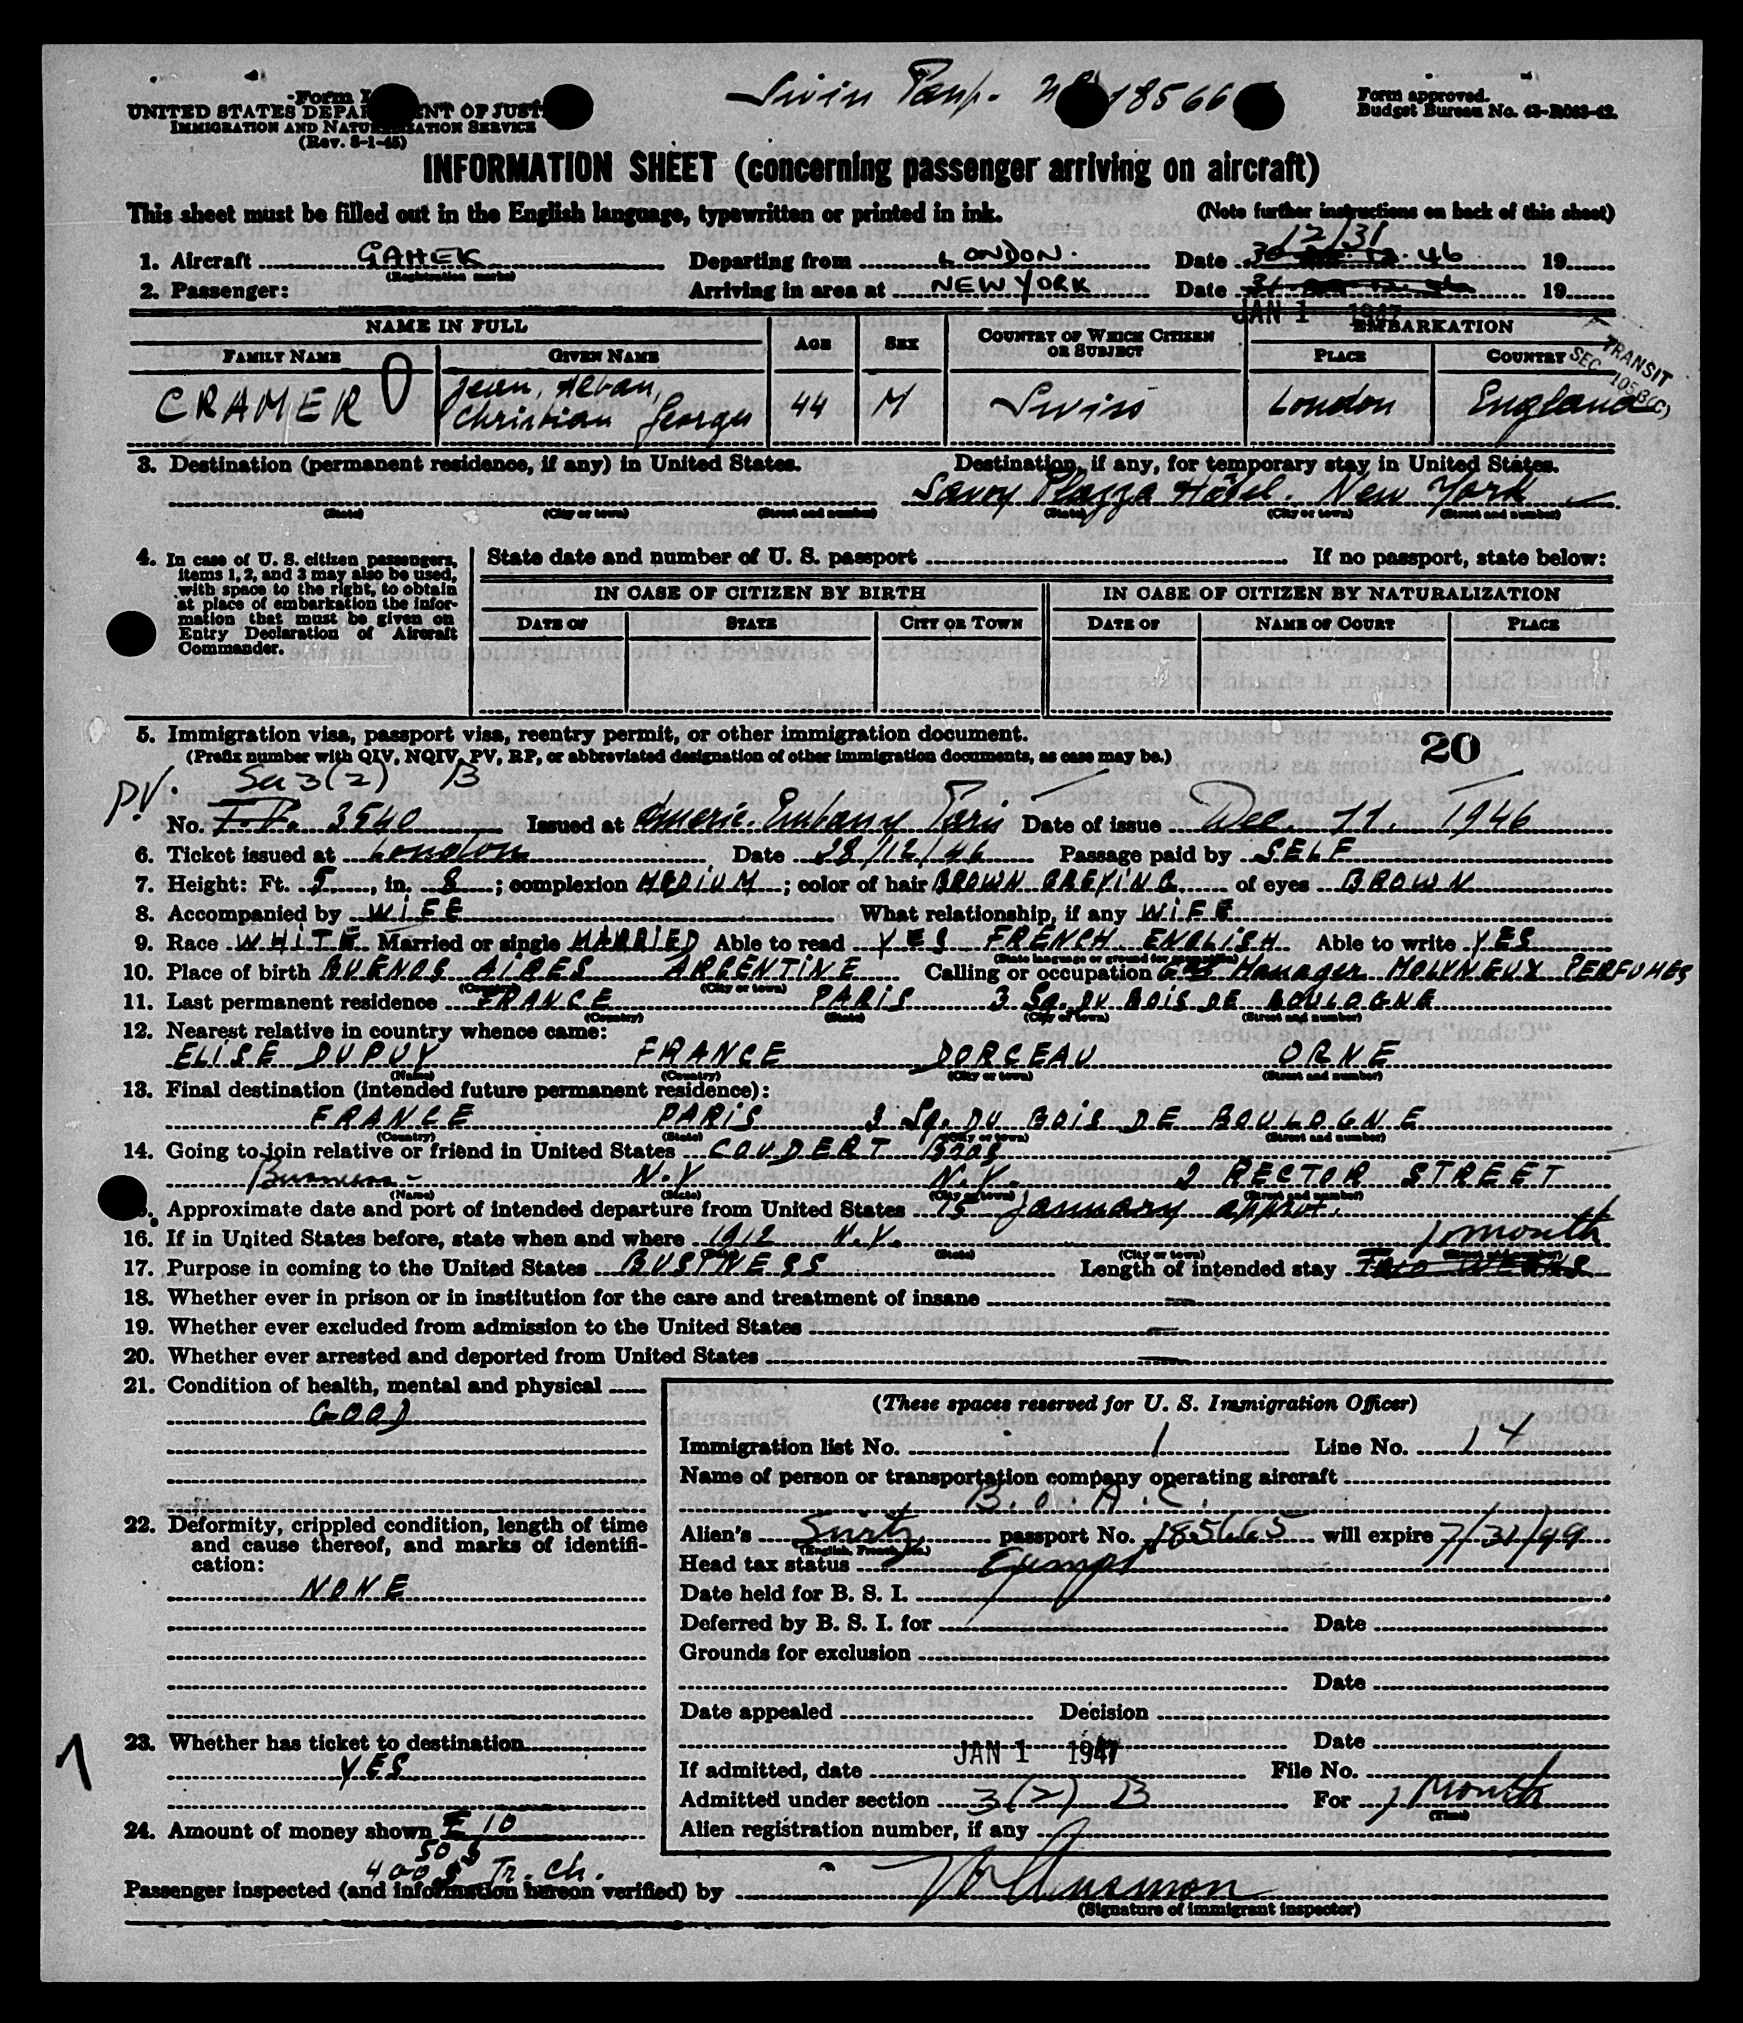 Swiss Passp. No 18566
Form I
UNITED STATES DEPARTMENT OF JUSTICE
IMMIGRATION AND NATURALIZATION SERVICE
(Rev. 8-1-45)
Form approved.
Budget Bureau No. 43-R083-42.
INFORMATION SHEET (concerning passenger arriving on aircraft)
This sheet must be filled out in the English language, typewritten or printed in ink. (Note further instructions on back of this sheet)
12/31
1. Aircraft GAHEK Departing from LONDON. Date 12.46 19
(Registration marks)
2. Passenger: Arriving in area at NEW YORK Date 31 19
JAN 1 1947
NAME IN FULL AGE SEX COUNTRY OF WHICH CITIZEN OR SUBJECT EMBARKATION
FAMILY NAME GIVEN NAME PLACE COUNTRY
TRANSIT
SEC. 105.3(C)
CRAMER Jean, Alban, Christian Georges 44 M Swiss London England
3. Destination (permanent residence, if any) in United States. Destination, if any, for temporary stay in United States.
Savoy Plazza Hôtel. New York
(State) (City or town) (Street and number) (State) (City or town) (Street and number)
4. In case of U. S. citizen passengers, items 1, 2, and 3 may also be used, with space to the right, to obtain at place of embarkation the information that must be given on Entry Declaration of Aircraft Commander.
State date and number of U. S. passport If no passport, state below:
IN CASE OF CITIZEN BY BIRTH IN CASE OF CITIZEN BY NATURALIZATION
DATE OF STATE CITY OR TOWN DATE OF NAME OF COURT PLACE
5. Immigration visa, passport visa, reentry permit, or other immigration document.
(Prefix number with QIV, NQIV, PV, RP, or abbreviated designation of other immigration documents, as case may be.)
20
PV. Sec 3(2) B
No. 3540 Issued at Americ. Embassy Paris Date of issue Dec. 11. 1946
6. Ticket issued at London Date 28/12/46 Passage paid by SELF
7. Height: Ft. 5, in. 8; complexion MEDIUM; color of hair BROWN GREYING of eyes BROWN
8. Accompanied by WIFE What relationship, if any WIFE
9. Race WHITE Married or single MARRIED Able to read YES FRENCH ENGLISH Able to write YES
(State language or ground for exemption)
10. Place of birth BUENOS AIRES ARGENTINE Calling or occupation Manager MOLYNEUX PERFUMES
(Country) (City or town)
11. Last permanent residence FRANCE PARIS 3 Sq. DU BOIS DE BOULOGNE
(Country) (State) (City or town) (Street and number)
12. Nearest relative in country whence came:
ELISE DUPUY FRANCE DORCEAU ORNE
(Name) (Country) (City or town) (Street and number)
13. Final destination (intended future permanent residence):
FRANCE PARIS 3 Sq. DU BOIS DE BOULOGNE
(Country) (State) (City or town) (Street and number)
14. Going to join relative or friend in United States COUDERT BROS
Business - N.Y N.Y. 2 RECTOR STREET
(Name) (State) (City or town) (Street and number)
Approximate date and port of intended departure from United States 15 January approx.
16. If in United States before, state when and where 1912 N.Y. 1 month
(State) (City or town) (Street and number)
17. Purpose in coming to the United States BUSINESS Length of intended stay Two WEEKS
18. Whether ever in prison or in institution for the care and treatment of insane —
19. Whether ever excluded from admission to the United States —
20. Whether ever arrested and deported from United States —
21. Condition of health, mental and physical
GOOD
22. Deformity, crippled condition, length of time and cause thereof, and marks of identification:
NONE
23. Whether has ticket to destination
YES
1
24. Amount of money shown £ 10
50 $
400 $ Tr. ch.
(These spaces reserved for U. S. Immigration Officer)
Immigration list No. 1 Line No. 14
Name of person or transportation company operating aircraft
B.O.A.C.
Alien's passport No. 185665 will expire 7/31/49
(English, French, etc.)
Head tax status Exempt
Date held for B. S. I.
Deferred by B. S. I. for Date
Grounds for exclusion
Date
Date appealed Decision
Date
JAN 1 1947
If admitted, date File No.
Admitted under section 3(2) B For 1 Month
(Time)
Alien registration number, if any
Passenger inspected (and information hereon verified) by
(Signature of immigrant inspector)